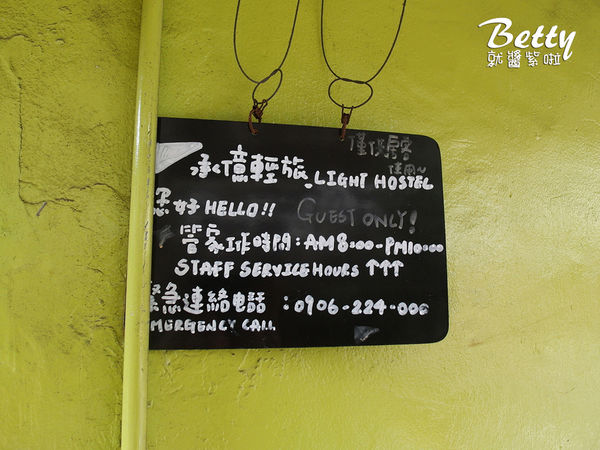 Betty
就醬紫啦
僅供房客
使用~
承億輕旅 LIGHT HOSTEL
您好 HELLO!! GUEST ONLY!
管家工作時間:AM8:00-PM10:00
STAFF SERVICE HOURS ↑↑↑
緊急連絡電話 :0906-224-000
EMERGENCY CALL